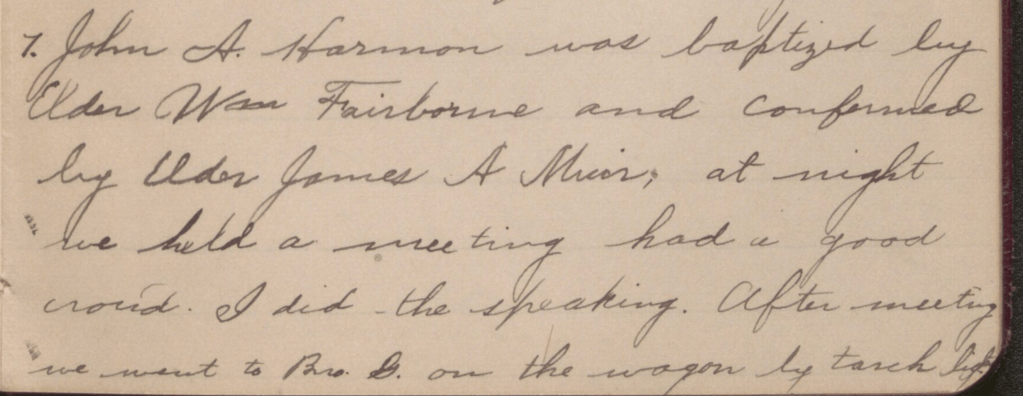 7. John A. Harmon was baptized by
Elder Wm Fairborne and confermed
by Elder James A Muir, at night
we held a meeting had a good
crowd. I did the speaking. After meeting
we went to Bro. G. on the wagon by tarch